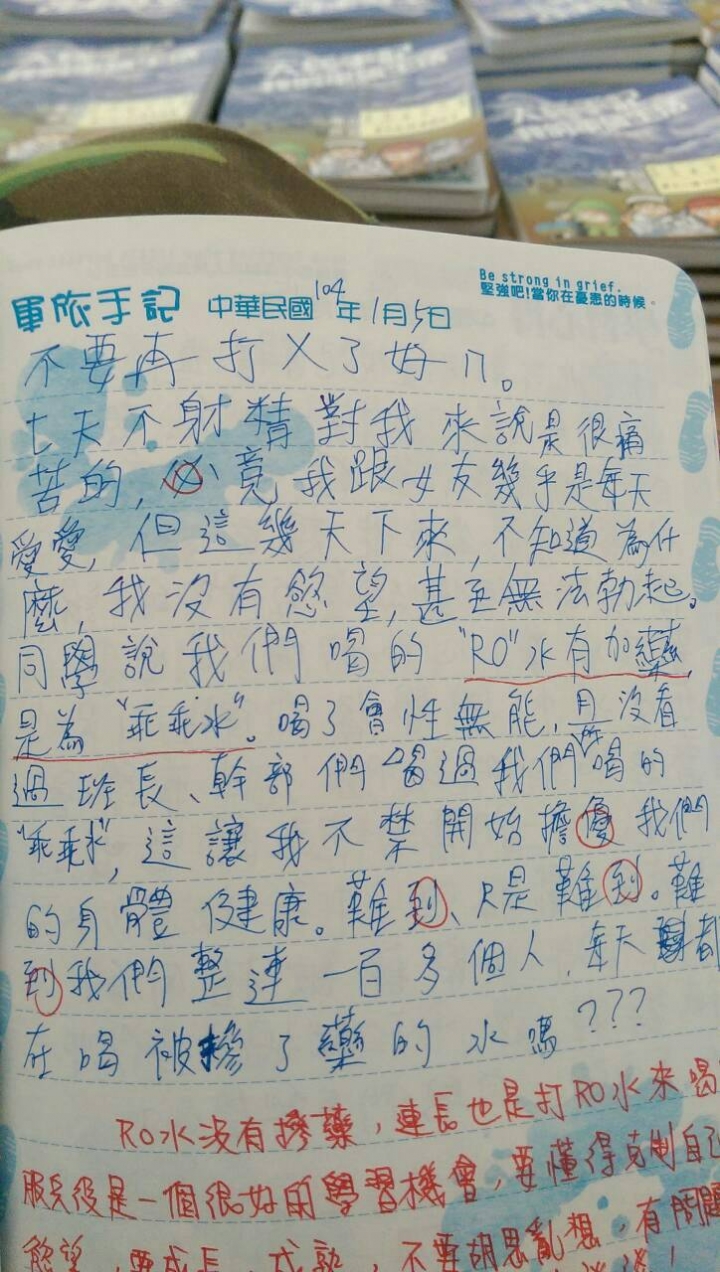 Be strong in grief.
堅強吧!當你在憂患的時候。
軍旅手記 中華民國104年1月5日
不要再打X了好ㄇ。
七天不射精對我來說是很痛
苦的,必竟我跟女友幾乎是每天
愛愛,但這幾天下來,不知道為什
麼,我沒有慾望,甚至無法勃起。
同學說我們喝的"RO"水有加藥,
是為"乖乖水"。喝了會性無能,且沒看
過班長、幹部們喝過我們所喝的
"乖乖水",這讓我不禁開始擔優我們
的身體健康。難到、只是難到。難
到我們整連一百多個人,每天都
在喝被摻了藥的水嗎???
RO水沒有摻藥,連長也是打RO水來喝
服兵役是一個很好的學習機會,要懂得克制自己
慾望,要成長、成熟,不要胡思亂想,有問題